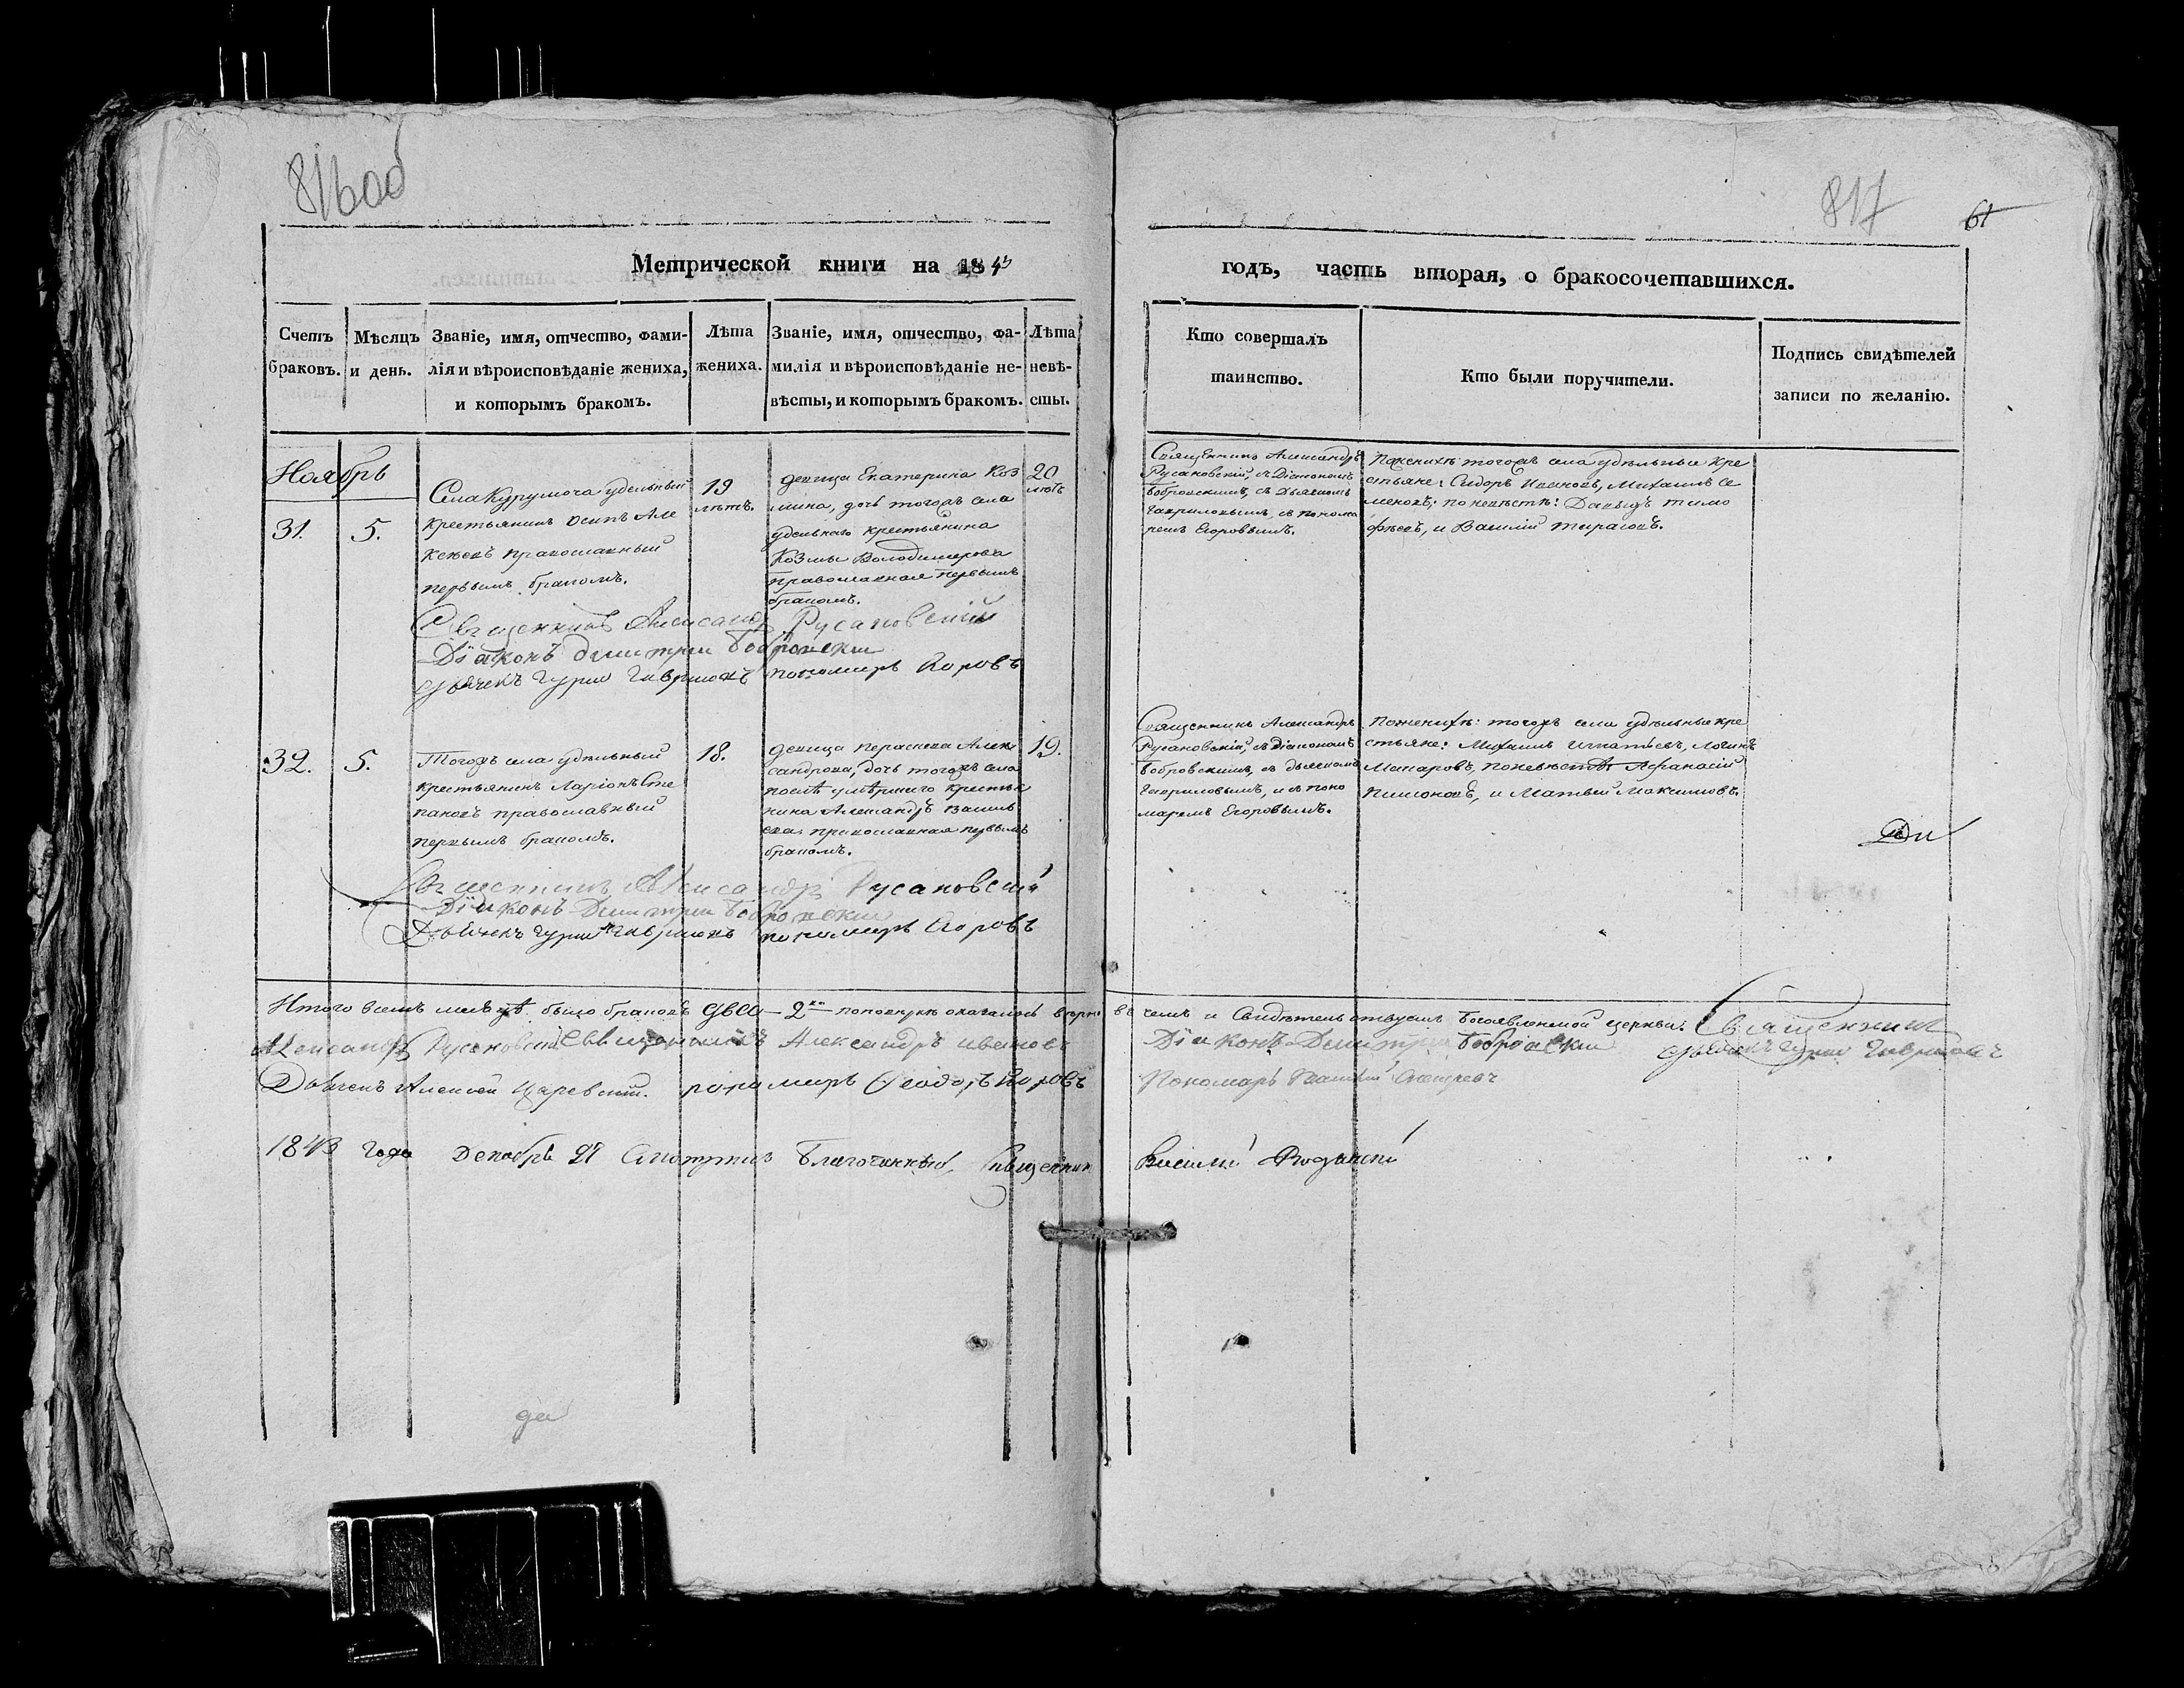 816об
817
61
Метрической книги на 1843
годъ, часть вторая, о бракосочетавшихся.
Счетъ
браковъ.
Мѣсяцъ
и день.
Званіе, имя, отчество, фами-
лія и вѣроисповѣданіе жениха,
и которымъ бракомъ.
Лѣта
жениха.
Званіе, имя, отчество, фа-
милія и вѣроисповѣданіе не-
вѣсты, и которымъ бракомъ.
Лѣта
невѣ-
сты.
Кто совершалъ
таинство.
Кто были поручители.
Подпись свидѣтелей
записи по желанію.
Ноябрь
31.
5.
Села Курумоча удельный
крестьянинъ Осипъ Але
кеевъ православный
первымъ бракомъ.
19
лѣтъ.
девица Екатерина Коз
мина, дочь тогожъ села
удельнаго крестьянина
Козмы Володимерова
православная первымъ
бракомъ.
20
лѣтъ
Священникъ Александръ
Русановскій, съ Діакономъ
Бобровскимъ, съ Дьячкомъ
Гавриловымъ, съ понома
ремъ Егоровымъ.
По женихѣ тогожъ села удѣльные кре
стьяне: Сидоръ Ивановъ, Михаилъ Се
меновъ; по невѣстѣ: Давыдъ Тимо
фѣевъ, и Василий Тарасовъ.
Священникъ Александр Русановский
Діаконъ Димитрий Бобровский
Дьячекъ Гурий Гавриловъ пономарь Егоровъ
32.
5.
Тогожъ села удѣльный
крестьянинъ Ларіонъ Сте
пановъ православный
первымъ бракомъ.
18.
девица Параскева Алек
сандрова, дочь тогожъ села
послѣ умѣршаго крестья
нина Александръ Василь
ева православная первымъ
бракомъ.
19.
Священникъ Александръ
Русановскій, съ діакономъ
Бобровскимъ, съ дьячкомъ
Гавриловымъ, и съ поно
маремъ Егоровымъ.
По женихѣ: тогожъ села удѣльные кре
стьяне: Михаилъ Игнатьевъ, Логинъ
Макаровъ, по невѣстѣ Афанасій
и Матвей Максимовъ.
Священникъ Александръ Русановский
Діаконъ Димитрий Бобровский
Дьячекъ Гурий Гавриловъ пономарь Егоровъ
Итого в семъ месяцѣ было браковъ два — 2 — по поверкѣ оказалось верно
въ чемъ и Свидѣтельствуемъ Богоявленской церкви: Священникъ
Александръ Русановский Священникъ Александръ Ивановъ
Діаконъ Димитрий Бобровский Дьячекъ Гурий Гавриловъ
Дьячекъ Алексей Царевский. пономарь Феодоръ Егоровъ
Пономарь
1843 года Декабря 21 Смотрилъ Благочинный, Священник
Василий